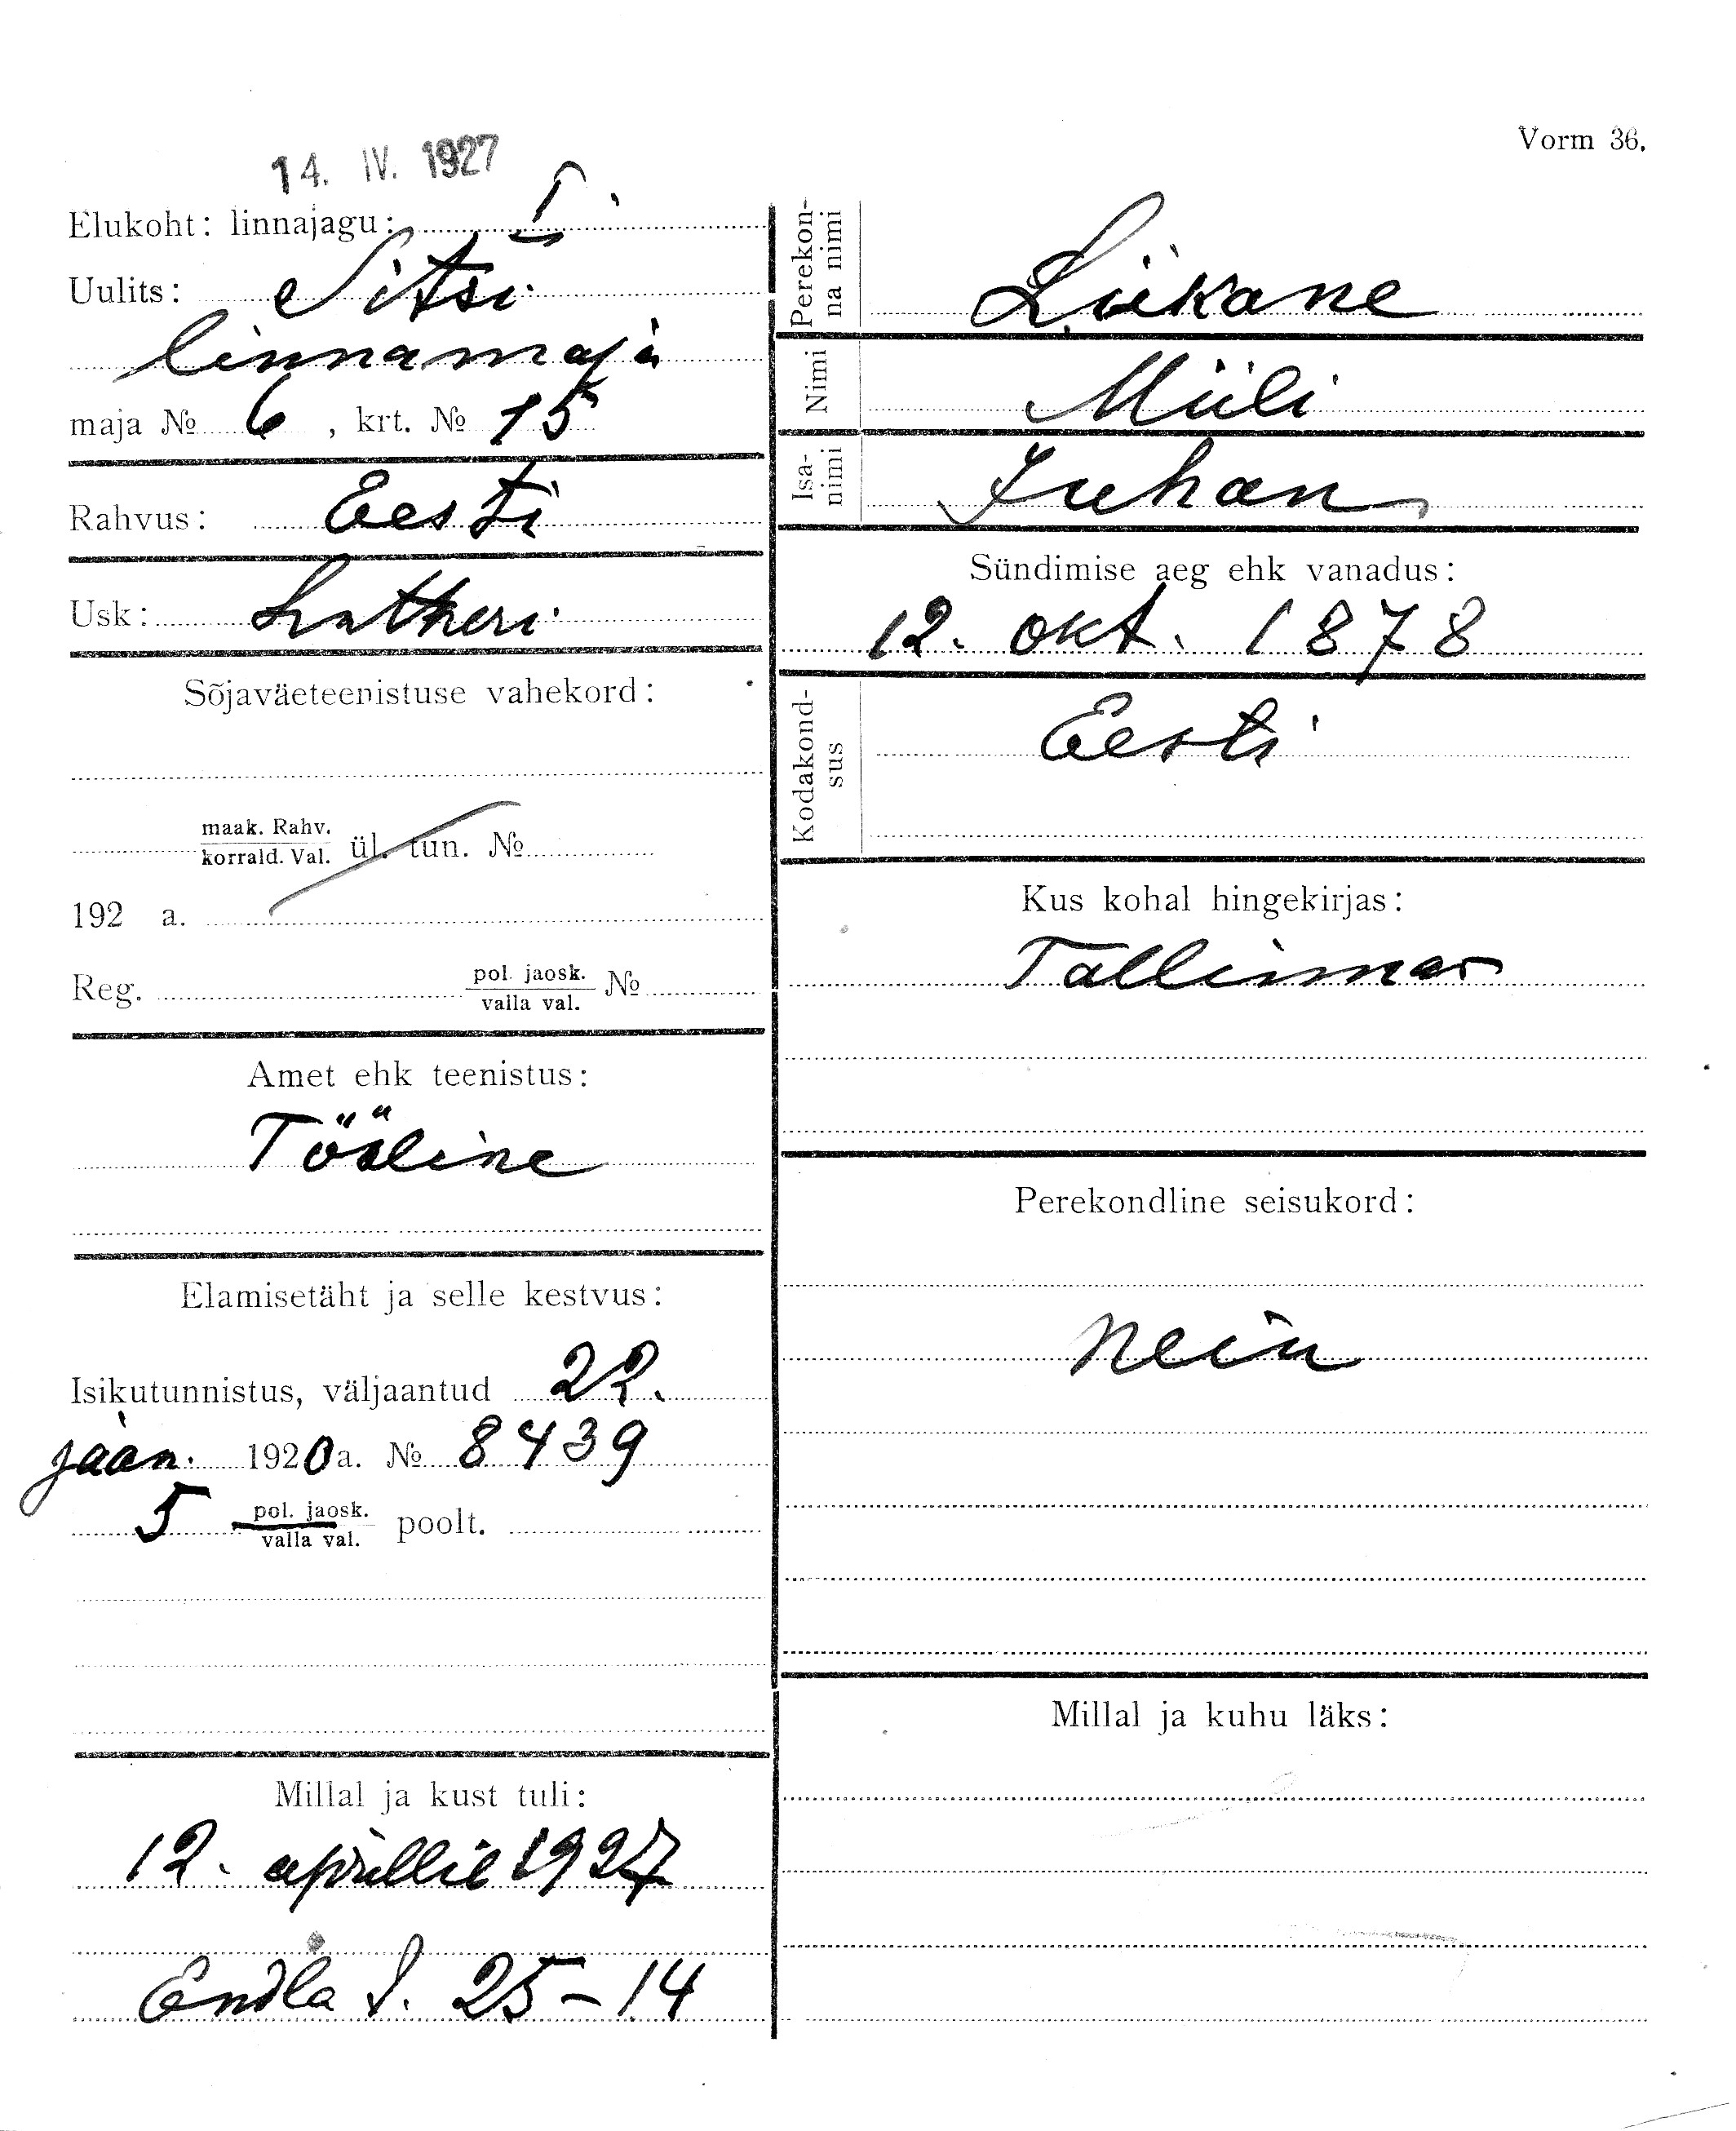 Vorm 36.
14. IV. 1927
Elukoht: linnajagu: I
Uulits: Sitsi
linnamaja
maja № 6, krt. № 15
Rahvus: Eesti
Usk: Lutheri
Sõjaväeteenistuse vahekord:
maak. Rahv.
korrald. Val. ül. tun. №
192 a.
Reg. pol. jaosk.
valla val. №
Amet ehk teenistus:
Tööline
Elamisetäht ja selle kestvus:
Isikutunnistus, väljaantud 22.
jaan. 1920 a. № 8439
5 pol. jaosk.
valla val. poolt.
Millal ja kust tuli:
12. aprillil 1927
Endla t. 25-14
Perekon-
na nimi
Liikane
Nimi
Miili
Isa-
nimi
Juhan
Sündimise aeg ehk vanadus:
12. okt. 1878
Kodakond-
sus
Eesti
Kus kohal hingekirjas:
Tallinnas
Perekondline seisukord:
nein
Millal ja kuhu läks: